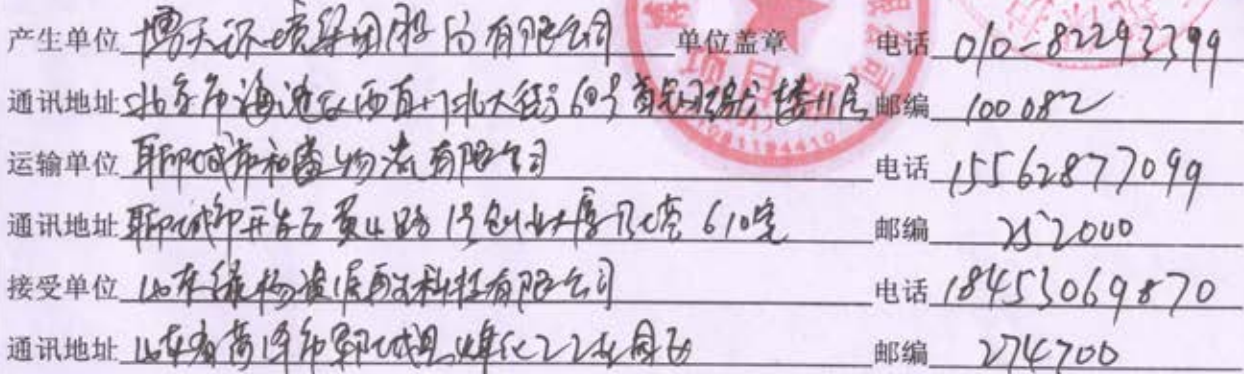 产生单位 博天环境集团股份有限公司 单位盖章 电话 010-82293399
通讯地址 北京市海淀区西直门北大街60号首钢综合楼11层 邮编 100082
运输单位 聊城市和富物流有限公司 电话 15562877099
通讯地址 聊城市开发区黄山路1号创业大厦B座610室 邮编 252000
接受单位 山东绿物资源再生科技有限公司 电话 18453069870
通讯地址 山东省菏泽市郓城县煤化工工业园区 邮编 274700
项目部